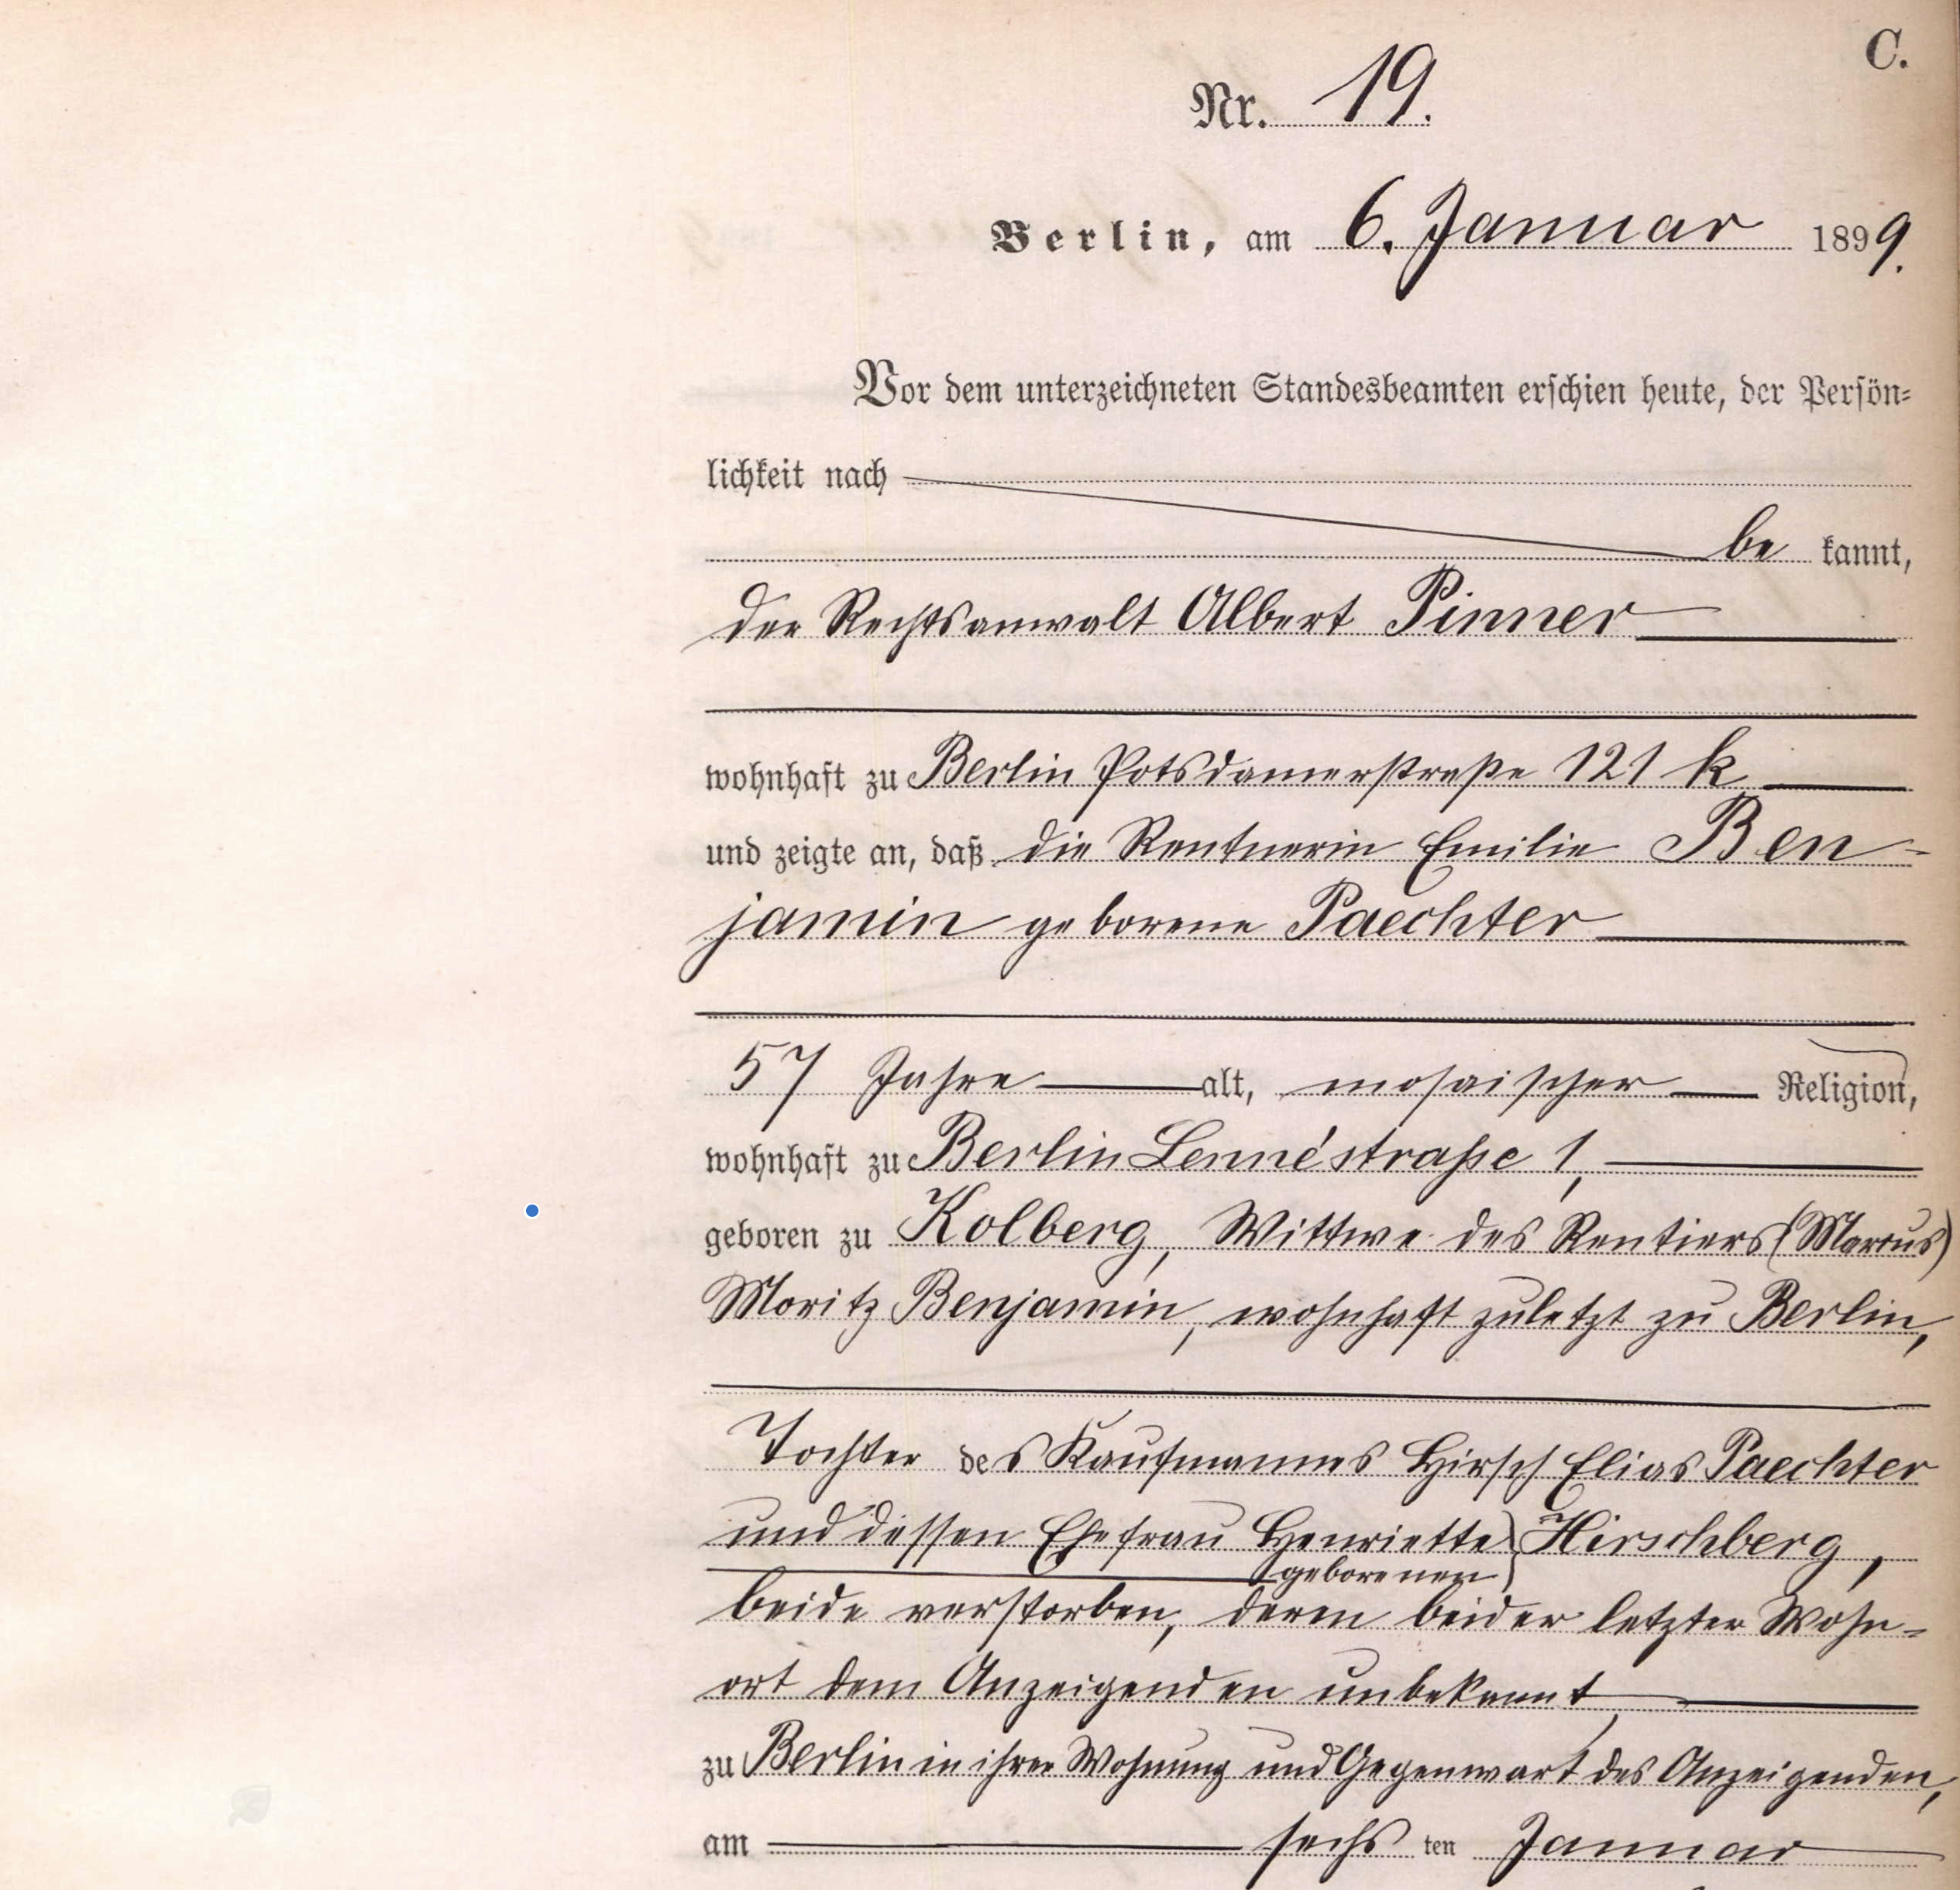 C.
Nr. 19.
Berlin, am 6. Januar 1899.
Vor dem unterzeichneten Standesbeamten erschien heute, der Persön-
lichkeit nach
be kannt,
der Rechtsanwalt Albert Pinner
wohnhaft zu Berlin Potsdamerstraße 121 k
und zeigte an, daß die Rentnerin Emilie Ben-
jamin geborene Paechter
57 Jahre alt, mosaischer Religion,
wohnhaft zu Berlin Lennéstraße 1,
geboren zu Kolberg, Wittwe des Rentiers (Marcus)
Moritz Benjamin, wohnhaft zuletzt zu Berlin,
Tochter des Kaufmannes Hirsch Elias Paechter
und dessen Ehefrau Henriette Hirschberg,
geborenen
beide verstorben, deren beider letzter Wohn-
ort dem Anzeigenden unbekannt,
zu Berlin in ihrer Wohnung und Gegenwart des Anzeigenden,
am sechs ten Januar